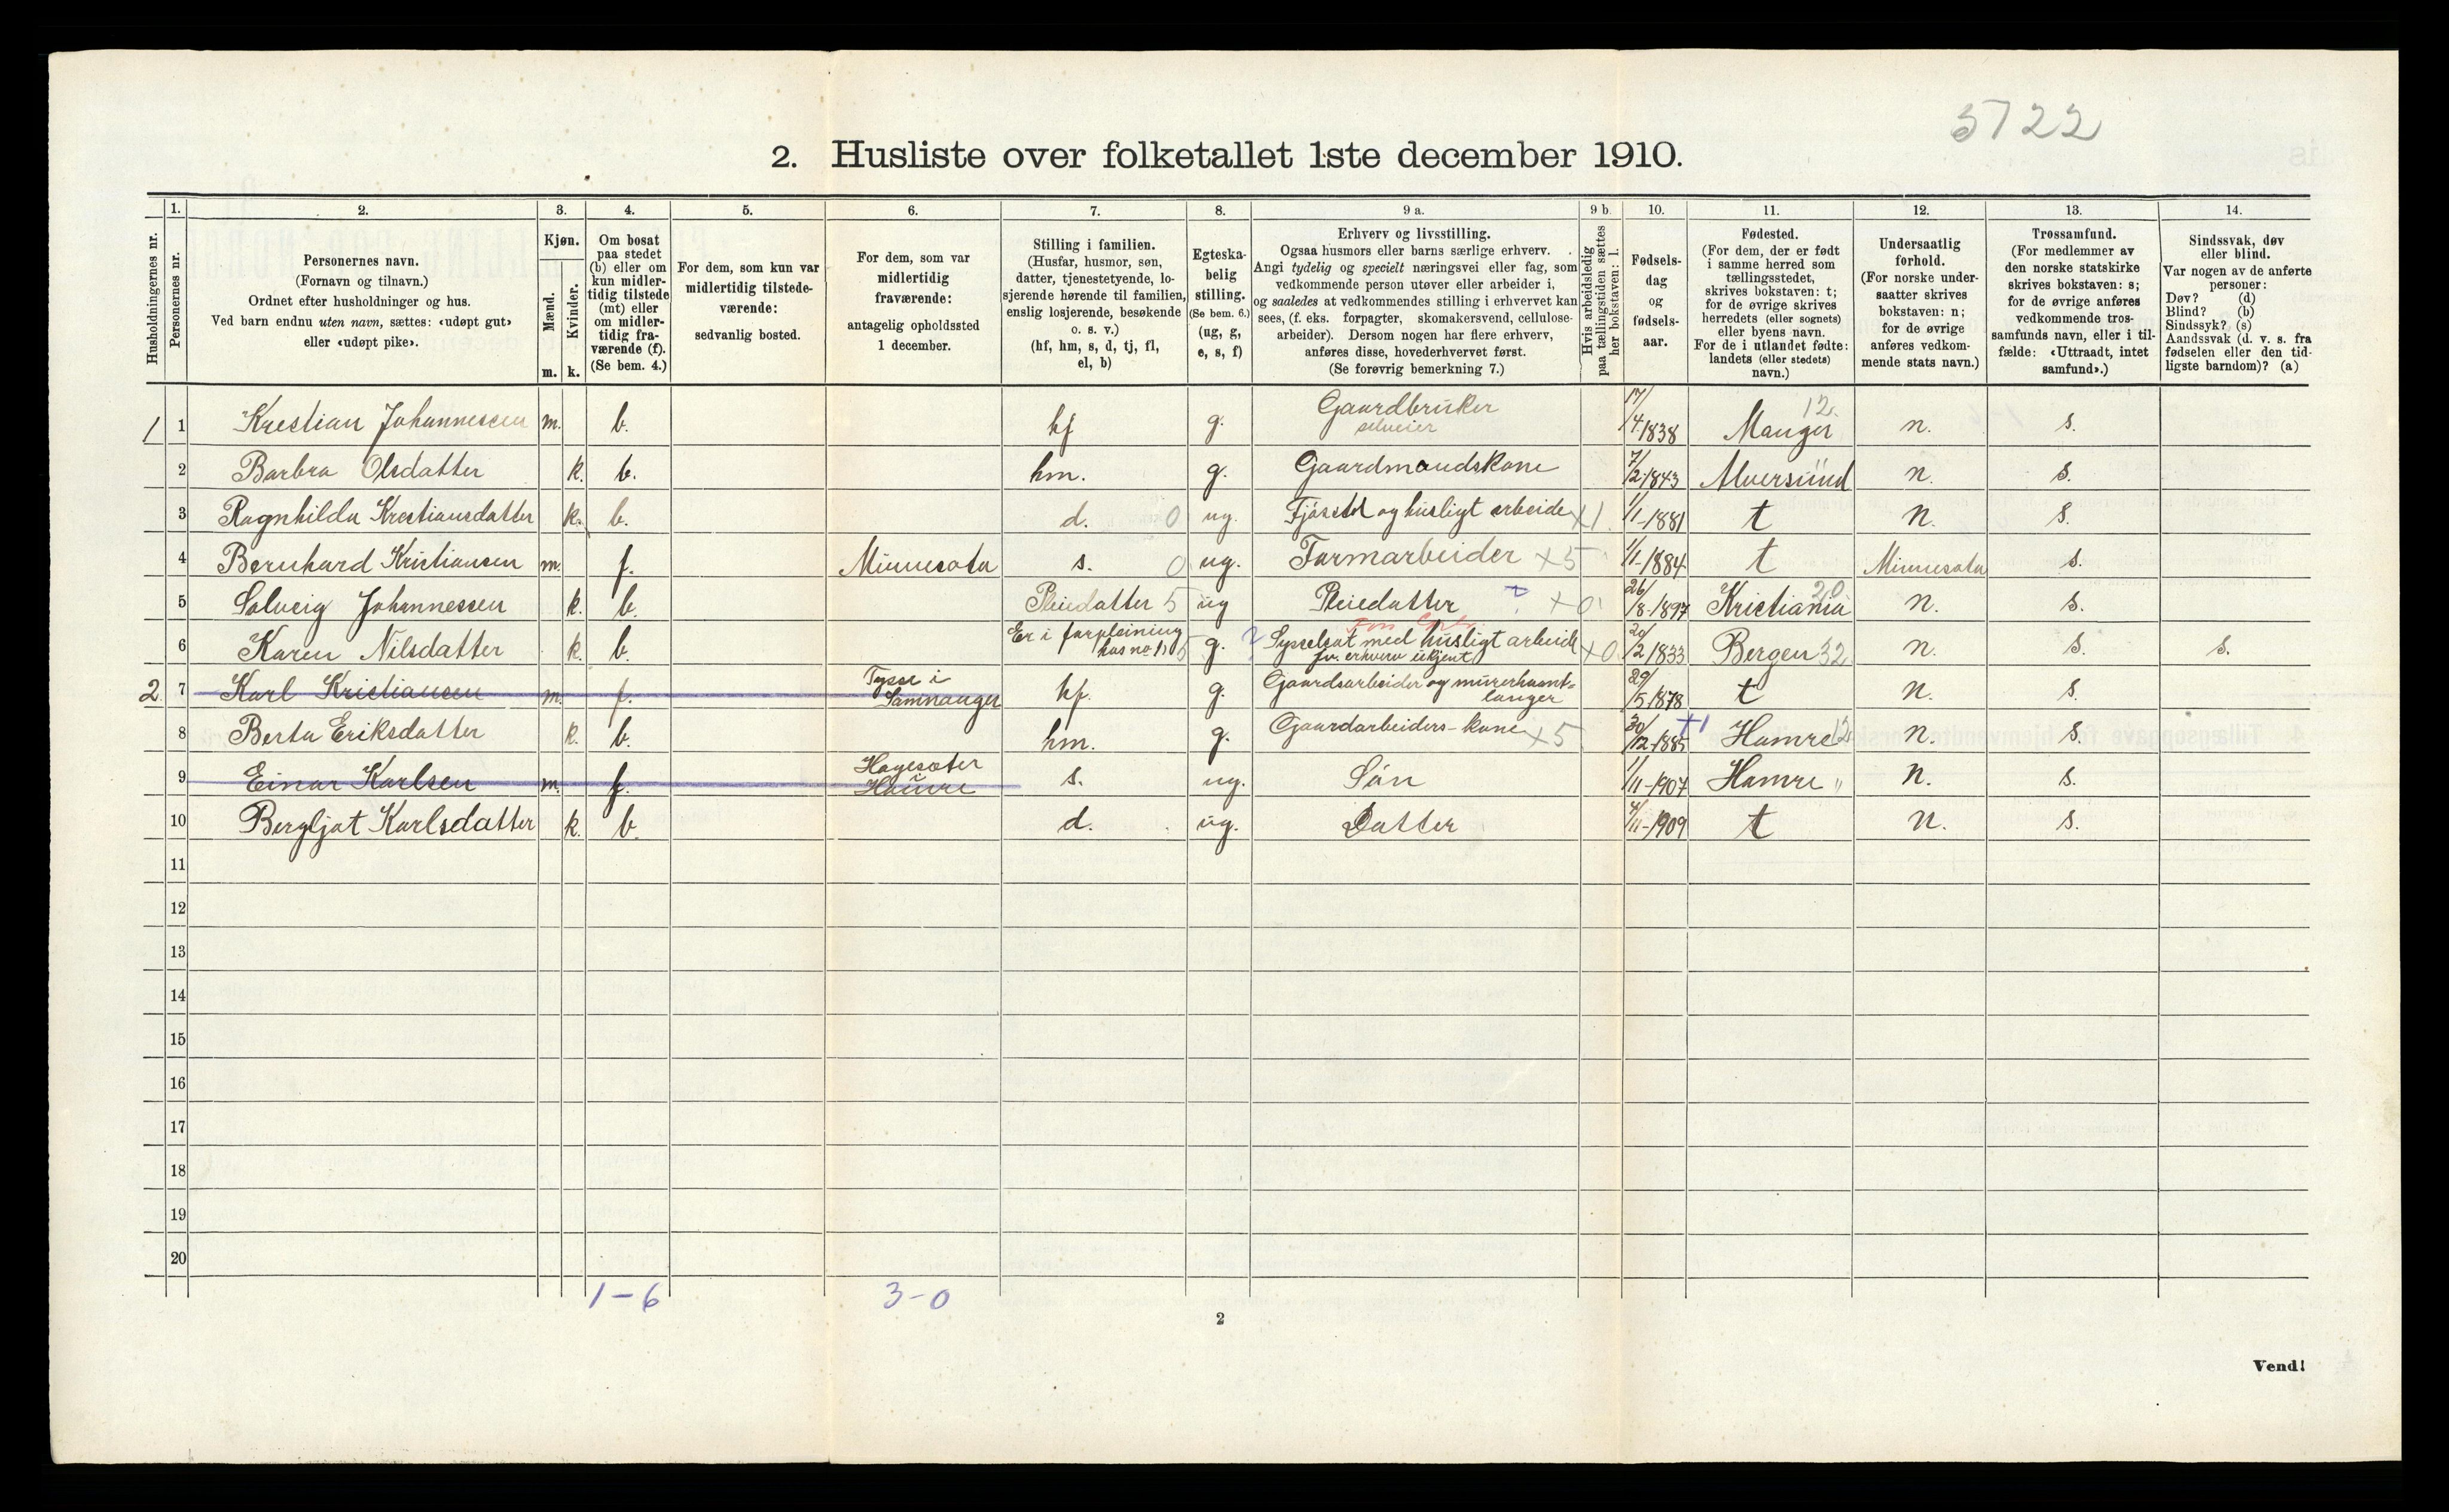 5722
2. Husliste over folketallet 1ste december 1910.
Husholdningernes nr.
1.
Personernes nr.
2.
Personernes navn.
(Fornavn og tilnavn.)
Ordnet efter husholdninger og hus.
Ved barn endnu uten navn, sættes: «udøpt gut»
eller «udøpt pike».
3.
Kjøn.
Mænd.
Kvinder.
m. k.
4.
Om bosat
paa stedet
(b) eller om
kun midler-
tidig tilstede
(mt) eller
om midler-
tidig fra-
værende (f).
(Se bem. 4.)
5.
For dem, som kun var
midlertidig tilstede-
værende:
sedvanlig bosted.
6.
For dem, som var
midlertidig
fraværende:
antagelig opholdssted
1 december.
7.
Stilling i familien.
(Husfar, husmor, søn,
datter, tjenestetyende, lo-
sjerende hørende til familien,
enslig losjerende, besøkende
o. s. v.)
(hf, hm, s, d, tj, fl,
el, b)
8.
Egteska-
belig
stilling.
(Se bem. 6.)
(ug, g,
e, s, f)
9 a.
Erhverv og livsstilling.
Ogsaa husmors eller barns særlige erhverv.
Angi tydelig og specielt næringsvei eller fag, som
vedkommende person utøver eller arbeider i,
og saaledes at vedkommendes stilling i erhvervet kan
sees, (f. eks. forpagter, skomakersvend, cellulose-
arbeider). Dersom nogen har flere erhverv,
anføres disse, hovederhvervet først.
(Se forøvrig bemerkning 7.)
9 b.
Hvis arbeidsledig
paa tællingstiden sættes
her bokstaven: l.
10.
Fødsels-
dag
og
fødsels-
aar.
11.
Fødested.
(For dem, der er født
i samme herred som
tællingsstedet,
skrives bokstaven: t;
for de øvrige skrives
herredets (eller sognets)
eller byens navn.
For de i utlandet fødte:
landets (eller stedets)
navn.)
12.
Undersaatlig
forhold.
(For norske under-
saatter skrives
bokstaven: n;
for de øvrige
anføres vedkom-
mende stats navn.)
13.
Trossamfund.
(For medlemmer av
den norske statskirke
skrives bokstaven: s;
for de øvrige anføres
vedkommende tros-
samfunds navn, eller i til-
fælde: «Uttraadt, intet
samfund».)
14.
Sindssvak, døv
eller blind.
Var nogen av de anførte
personer:
Døv? (d)
Blind? (b)
Sindssyk? (s)
Aandssvak (d. v. s. fra
fødselen eller den tid-
ligste barndom)? (a)
1 1 Krestian Johannessen m. b. hf g. Gaardbruker selveier 17/4 1838 Manger 12. n. s.
2 Barbra Olsdatter k. b. hm. g. Gaardmandskone 7/2 1843 Alversund n. s.
3 Ragnhilda Krestiansdatter k. b. d. 0 ug. Fjösstel og husligt arbeide x1 1/1-1881 t n. s.
4 Bernhard Kristiansen m. f. Minnesota s. 0 ug. Farmarbeider x5 1/1-1884 t Minnesota s.
5 Solveig Johannessen k. b. Pleiedatter 5 ug Pleiedatter ? x0 26/8-1897 Kristiania 20 n. s.
6 Karen Nilsdatter k. b. Er i forpleining hos no 1 5 g. ? Sysselsat med husligt arbeide fv. erhverv ukjent x0 20/2 1833 Bergen 32 n. s. s.
2. 7 Karl Kristiansen m. f. Tysse i Samnanger hf. g. Gaardsarbeider og murerhaant-langer 29/5 1878 t n. s.
8 Berta Eriksdatter k. b. hm. g. Gaardarbeiders-kone x5 30/12-1885 +1 Hamre 12 n. s.
9 Einar Karlsen m. f. Hagesæter i Hamre s. ug. Sön 1/11-1907 Hamre " n. s.
10 Bergljot Karlsdatter k. b. d. ug. Datter 4/11-1909 t n. s.
11
12
13
14
15
16
17
18
19
20
1-6 3-0
2
Vend!